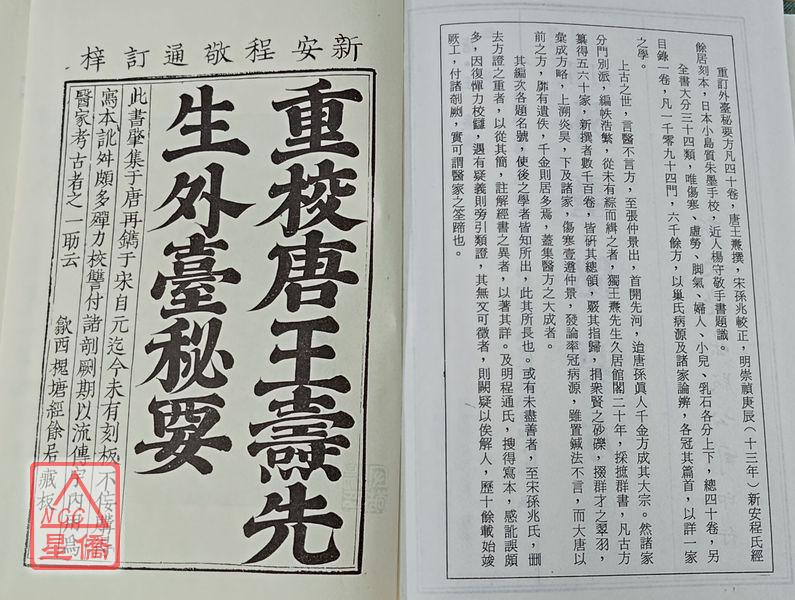 重訂外臺秘要方凡四十卷，唐王燾撰，宋孫兆較正，明崇禎庚辰（十三年）新安程氏經
餘居刻本，日本小島質朱墨手校，近人楊守敬手書題識。
全書大分三十四類，唯傷寒、虛勞、脚氣、婦人、小兒、乳石各分上下，總四十卷，另
目錄一卷，凡一千零九十四門，六千餘方，以巢氏病源及諸家論辨，各冠其篇首，以詳一家
之學。
上古之世，言醫不言方，至張仲景出，首開先河，迨唐孫眞人千金方成其大宗。然諸家
分門別派，編帙浩繁，從未有綜而緝之者，獨王燾先生久居館閣二十年，採摭群書，凡古方
纂得五六十家，新撰者數千百卷，皆研其總領，覈其指歸，捐衆賢之砂礫，掇群才之翠羽，
彙成方略，上溯炎昊，下及諸家，傷寒壹遵仲景，發論率冠病源，雖置鍼法不言，而大唐以
前之方，靡有遺佚，千金則居多焉，蓋集醫方之大成者。
其編次各題名號，使後之學者皆知所出，此其所長也。或有未盡善者，至宋孫兆氏，刪
去方證之重者，以從其簡，註解經書之異者，以著其詳。及明程通氏，搜得寫本，感訛誤頗
多，因復憚力校讎，遇有疑義則旁引類證，其無文可徵者，則闕疑以俟解人，歷十餘載始竣
厥工，付諸剞劂，實可謂醫家之筌蹄也。
新安程敬通訂梓
重校唐王燾先
生外臺秘要
此書肇集于唐再鐫于宋自元迄今未有刻板不佞
寫本訛舛頗多殫力校讐付諸剞劂期以流傳宇內用爲
醫家考古者之一助云
歙西槐塘經餘居藏板
NCC
星僑